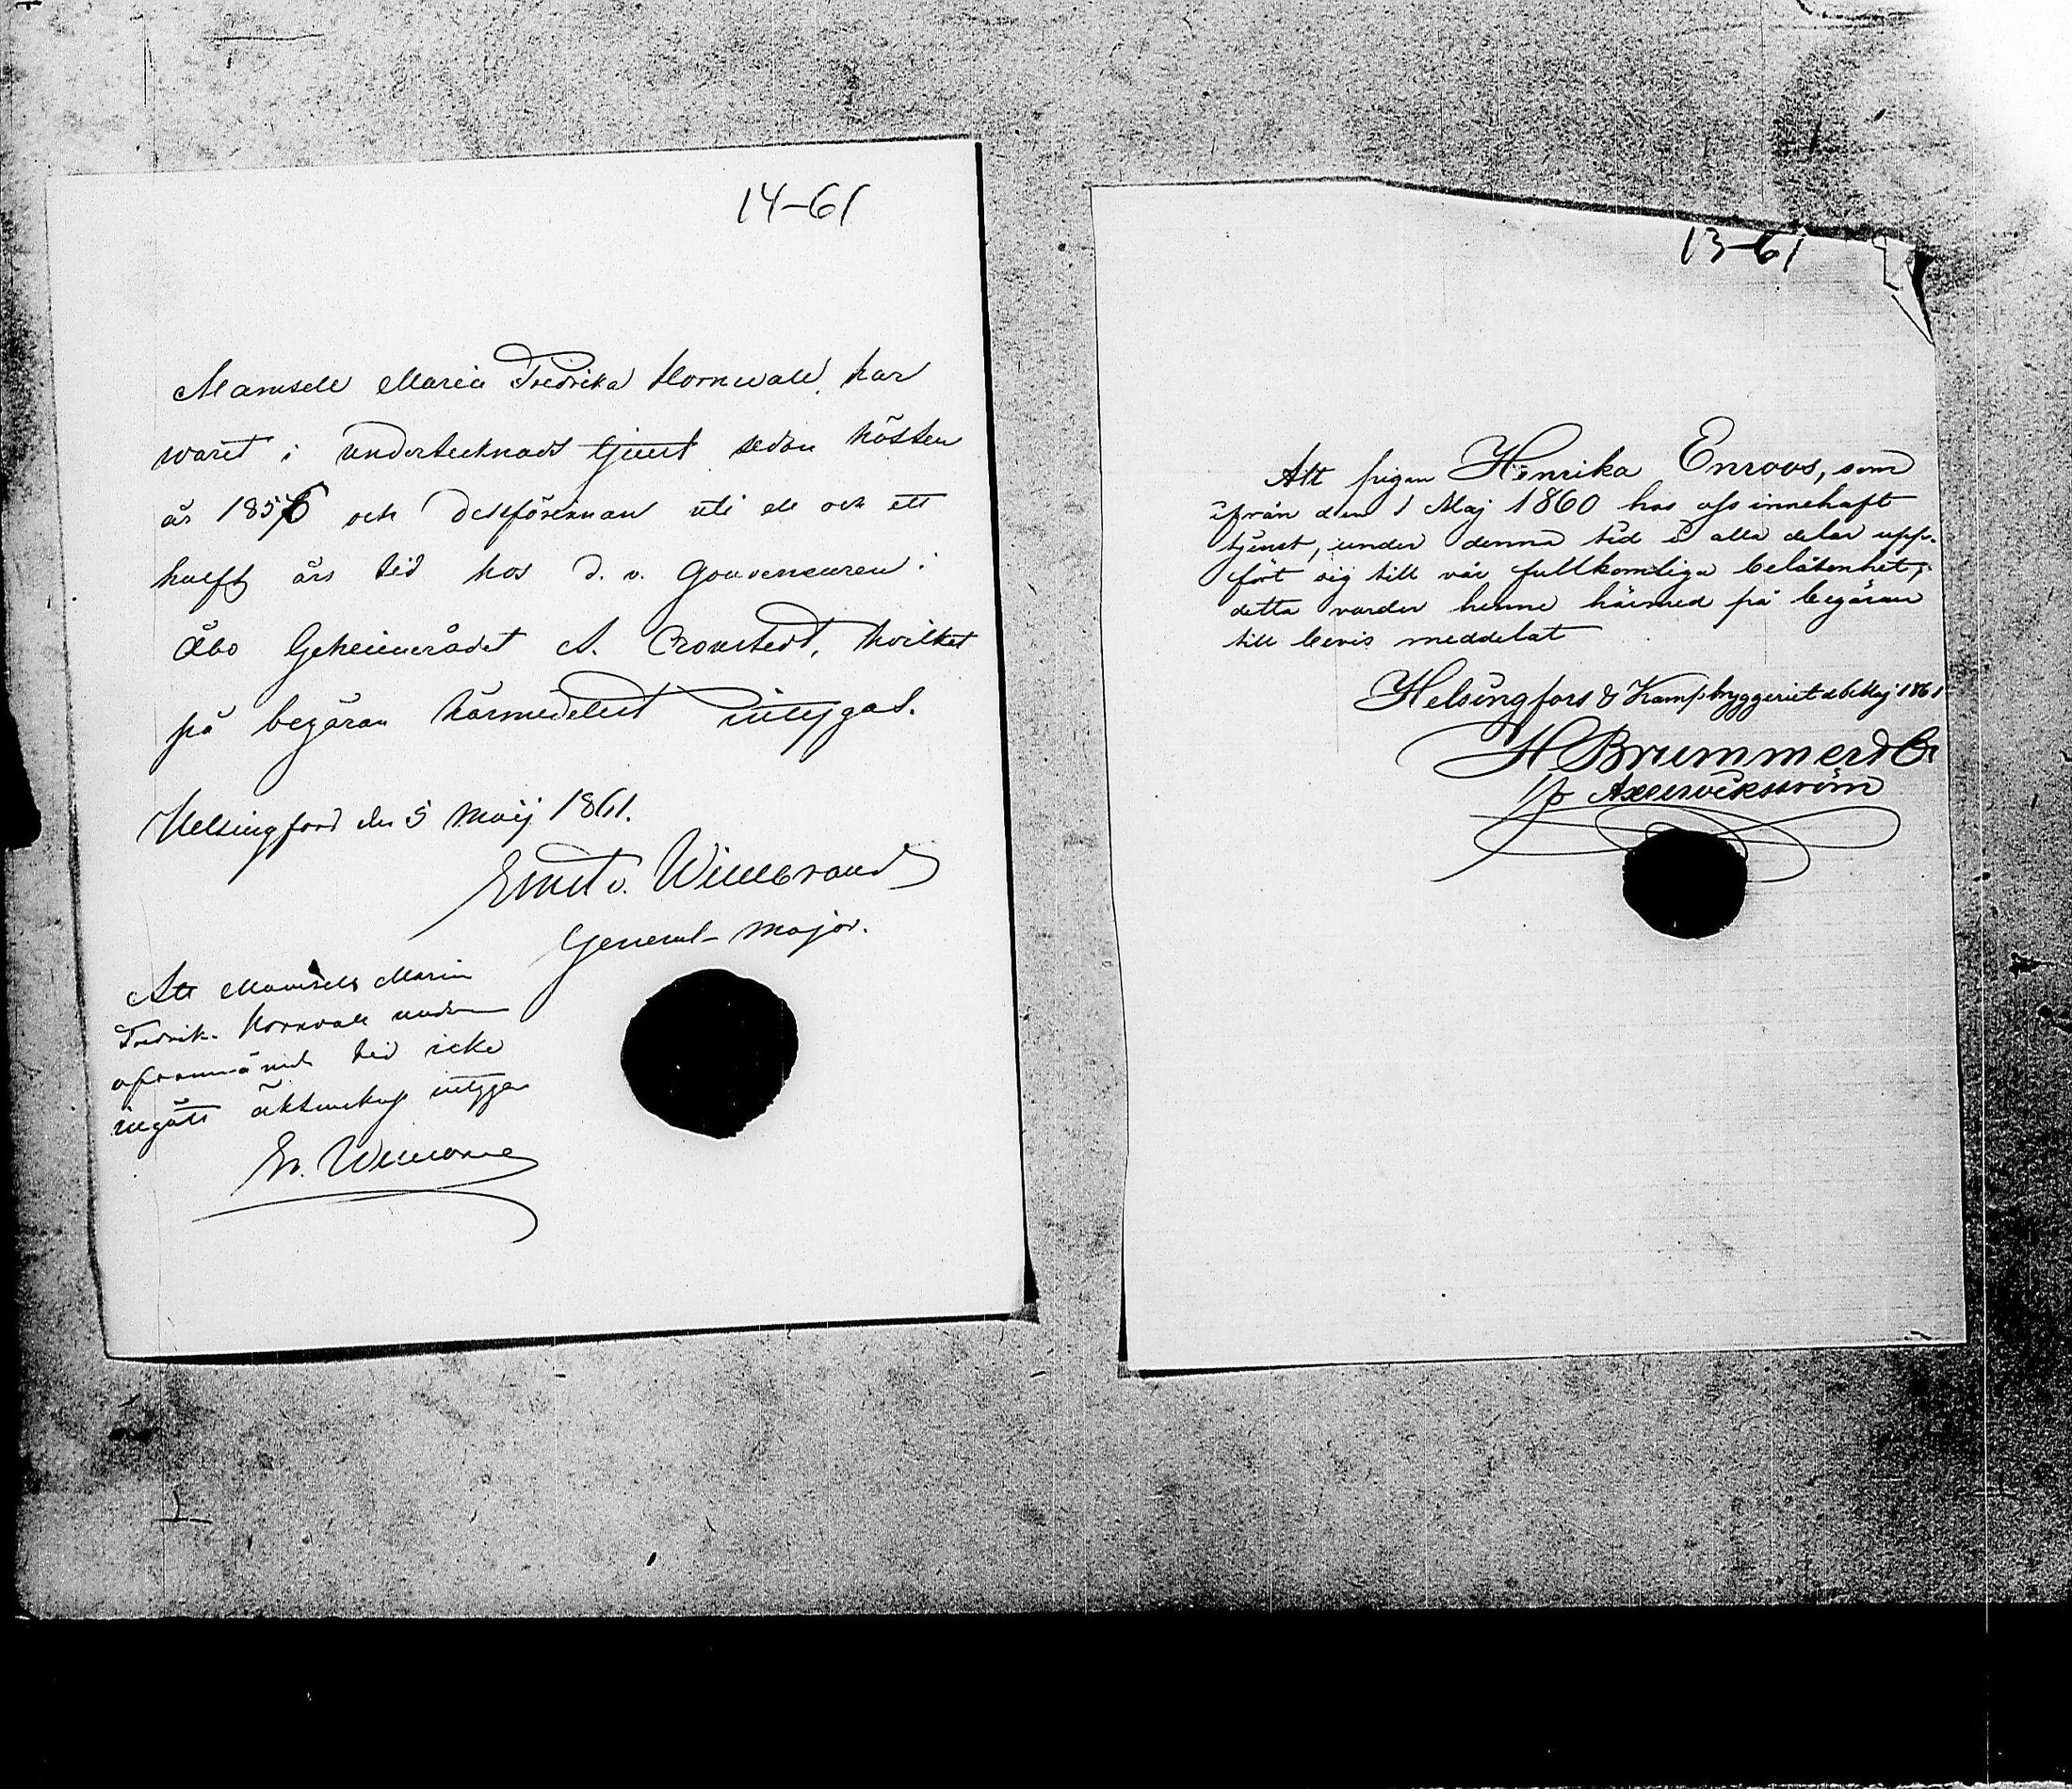 14-61
Mamsell Maria Fredrika Hornwall, har
warit i undertecknads tjenst sedan hösten
år 1856 och dessförinnan uti ett och ett
halft års tid hos d. v. Gouverneuren i
Åbo Geheimerådet A. Cronstedt, hvilket
på begäran härmedelst intygas.
Helsingfors den 5 Maij 1861.
Ernst v. Willebrand
General-Major.
Att Mamsell Maria
Fredrik. Hornvall under
ofvannämnde tid icke
ingått äktenskap intygar
E v. Willebrand
13-61
Att pigan Henrika Enroos, som
ifrån den 1 Maj 1860 hos oss innehaft
tjenst, under denna tid i alla delar upp-
fört sig till vår fullkomliga belåtenhet;
detta varder henne härmed på begäran
till bevis meddelat
Helsingfors & Kampbryggeriet d 6 Maj 1861
H Brummer & Co
pp Axel Wickström